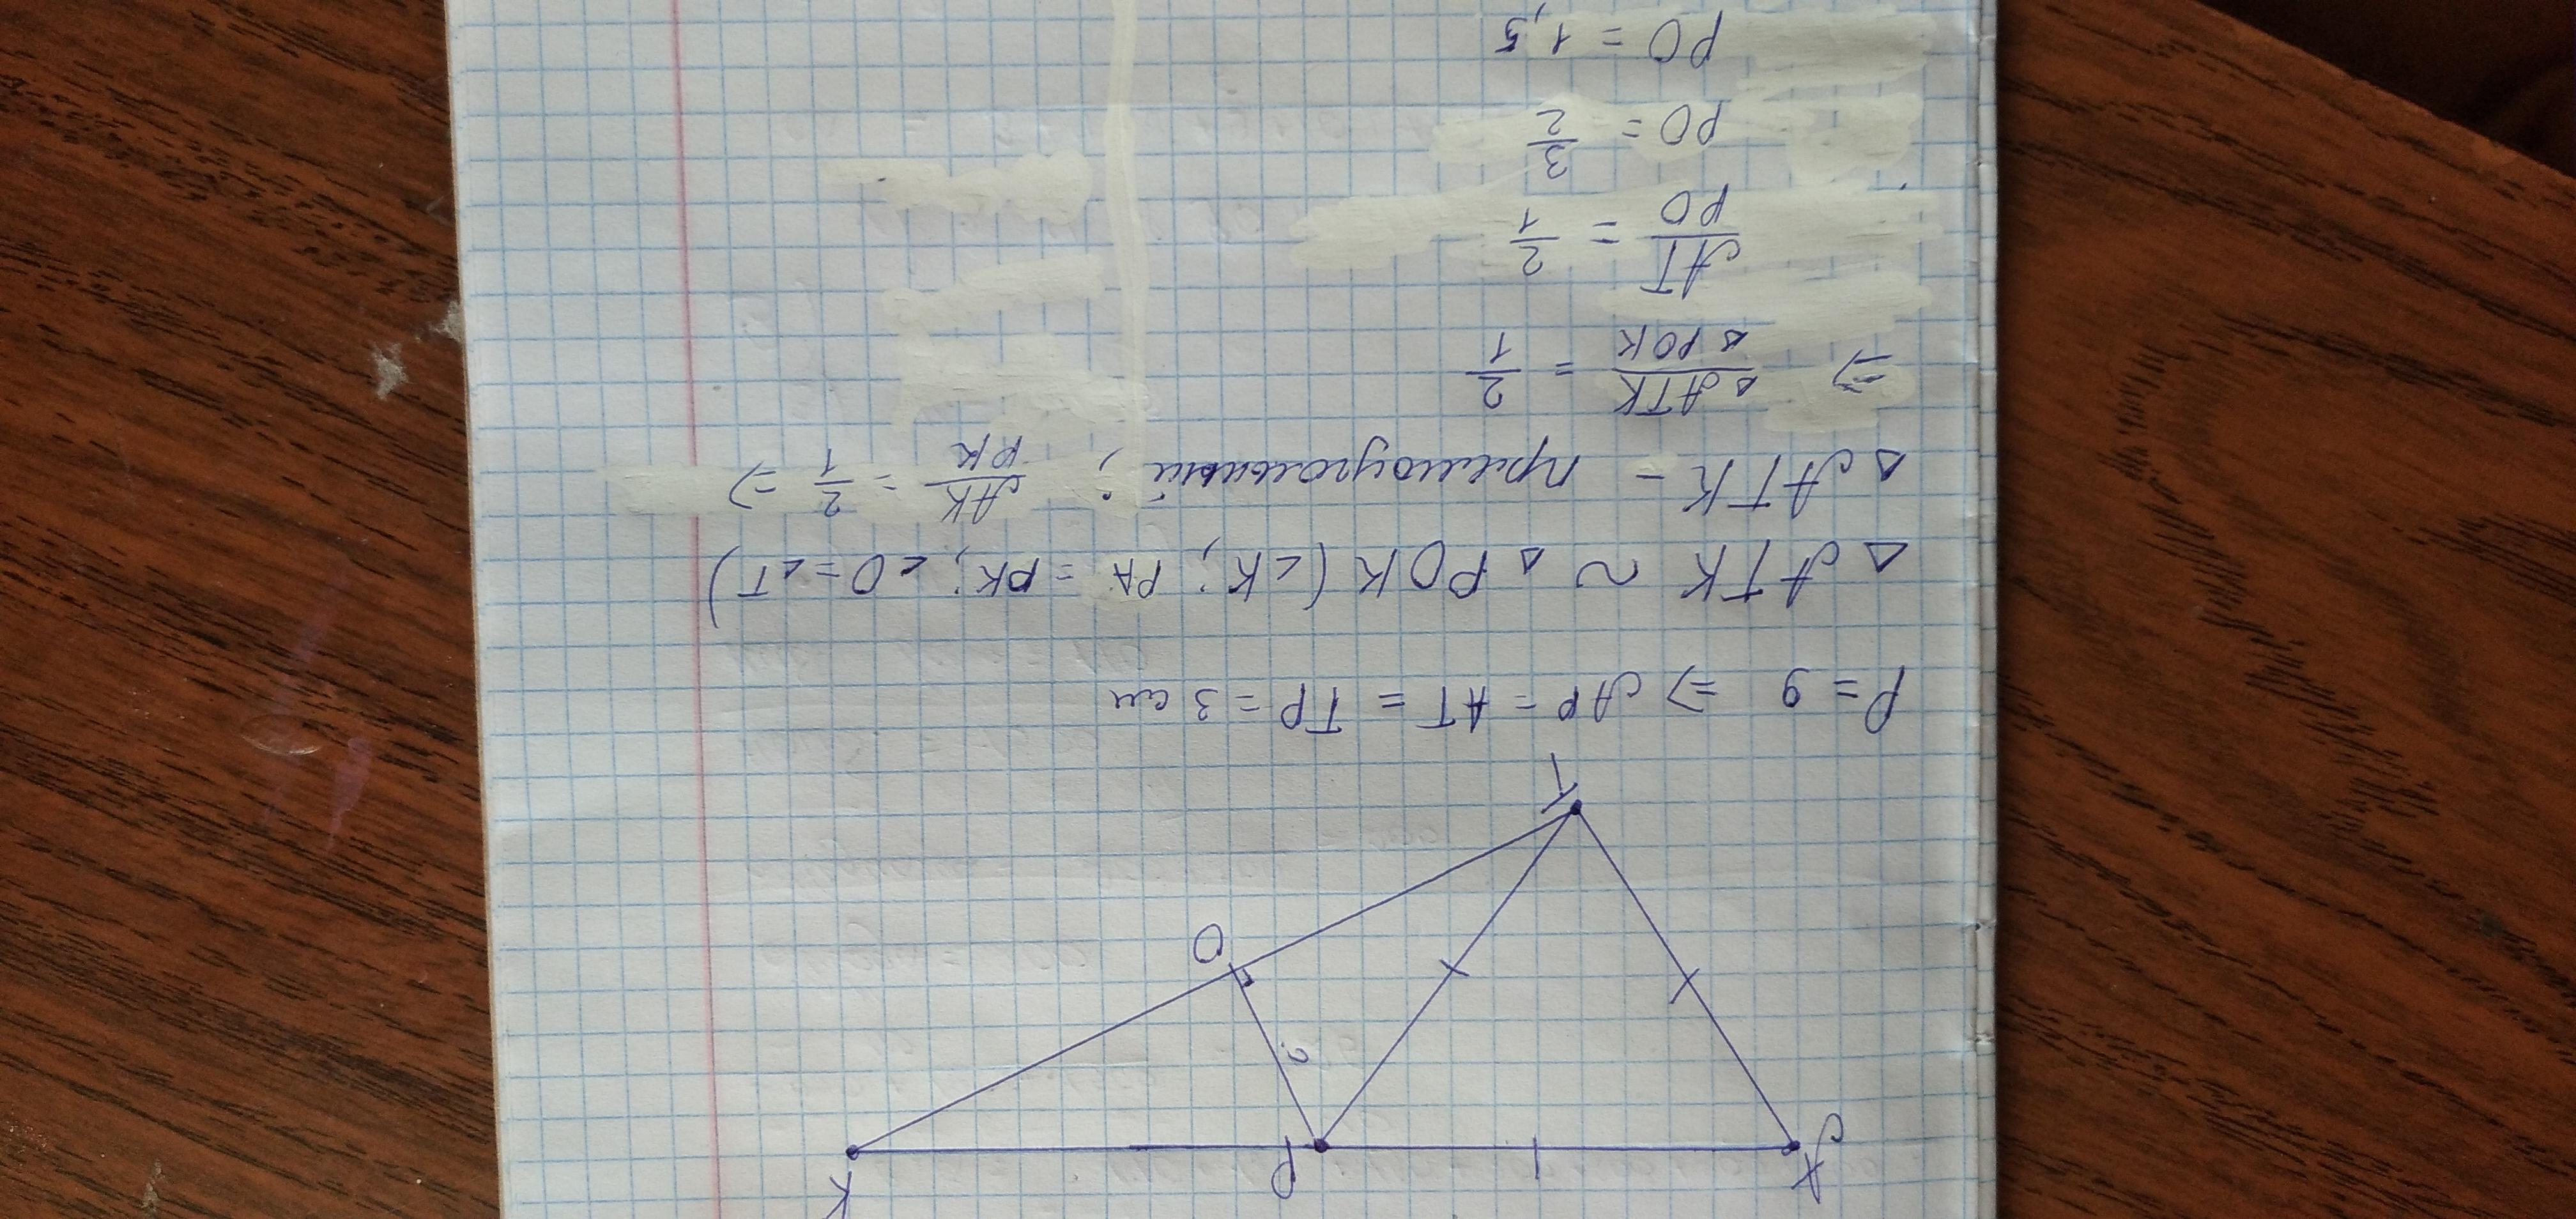 A P K
?
O
T
P = 9 ⇒ AP = AT = TP = 3 см
△ ATK ~ △ POK (∠K; PA = PK; ∠O = ∠T)
△ ATK - прямоугольный; AK/PK = 2/1 ⇒
⇒ △ATK/△POK = 2/1
AT/PO = 2/1
PO = 3/2
PO = 1,5